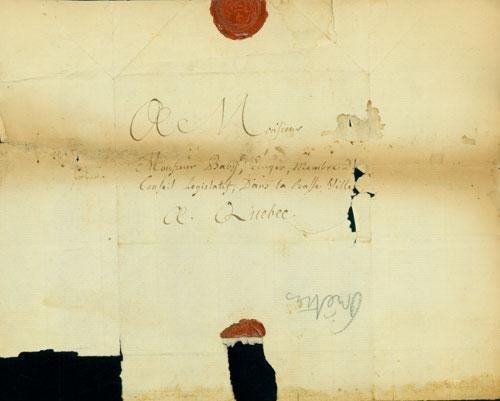 A Monsieur
Monsieur Baby, Ecuyer, Membre D
Conseil Legislatif, Dans la Basse Ville
A Quebec.